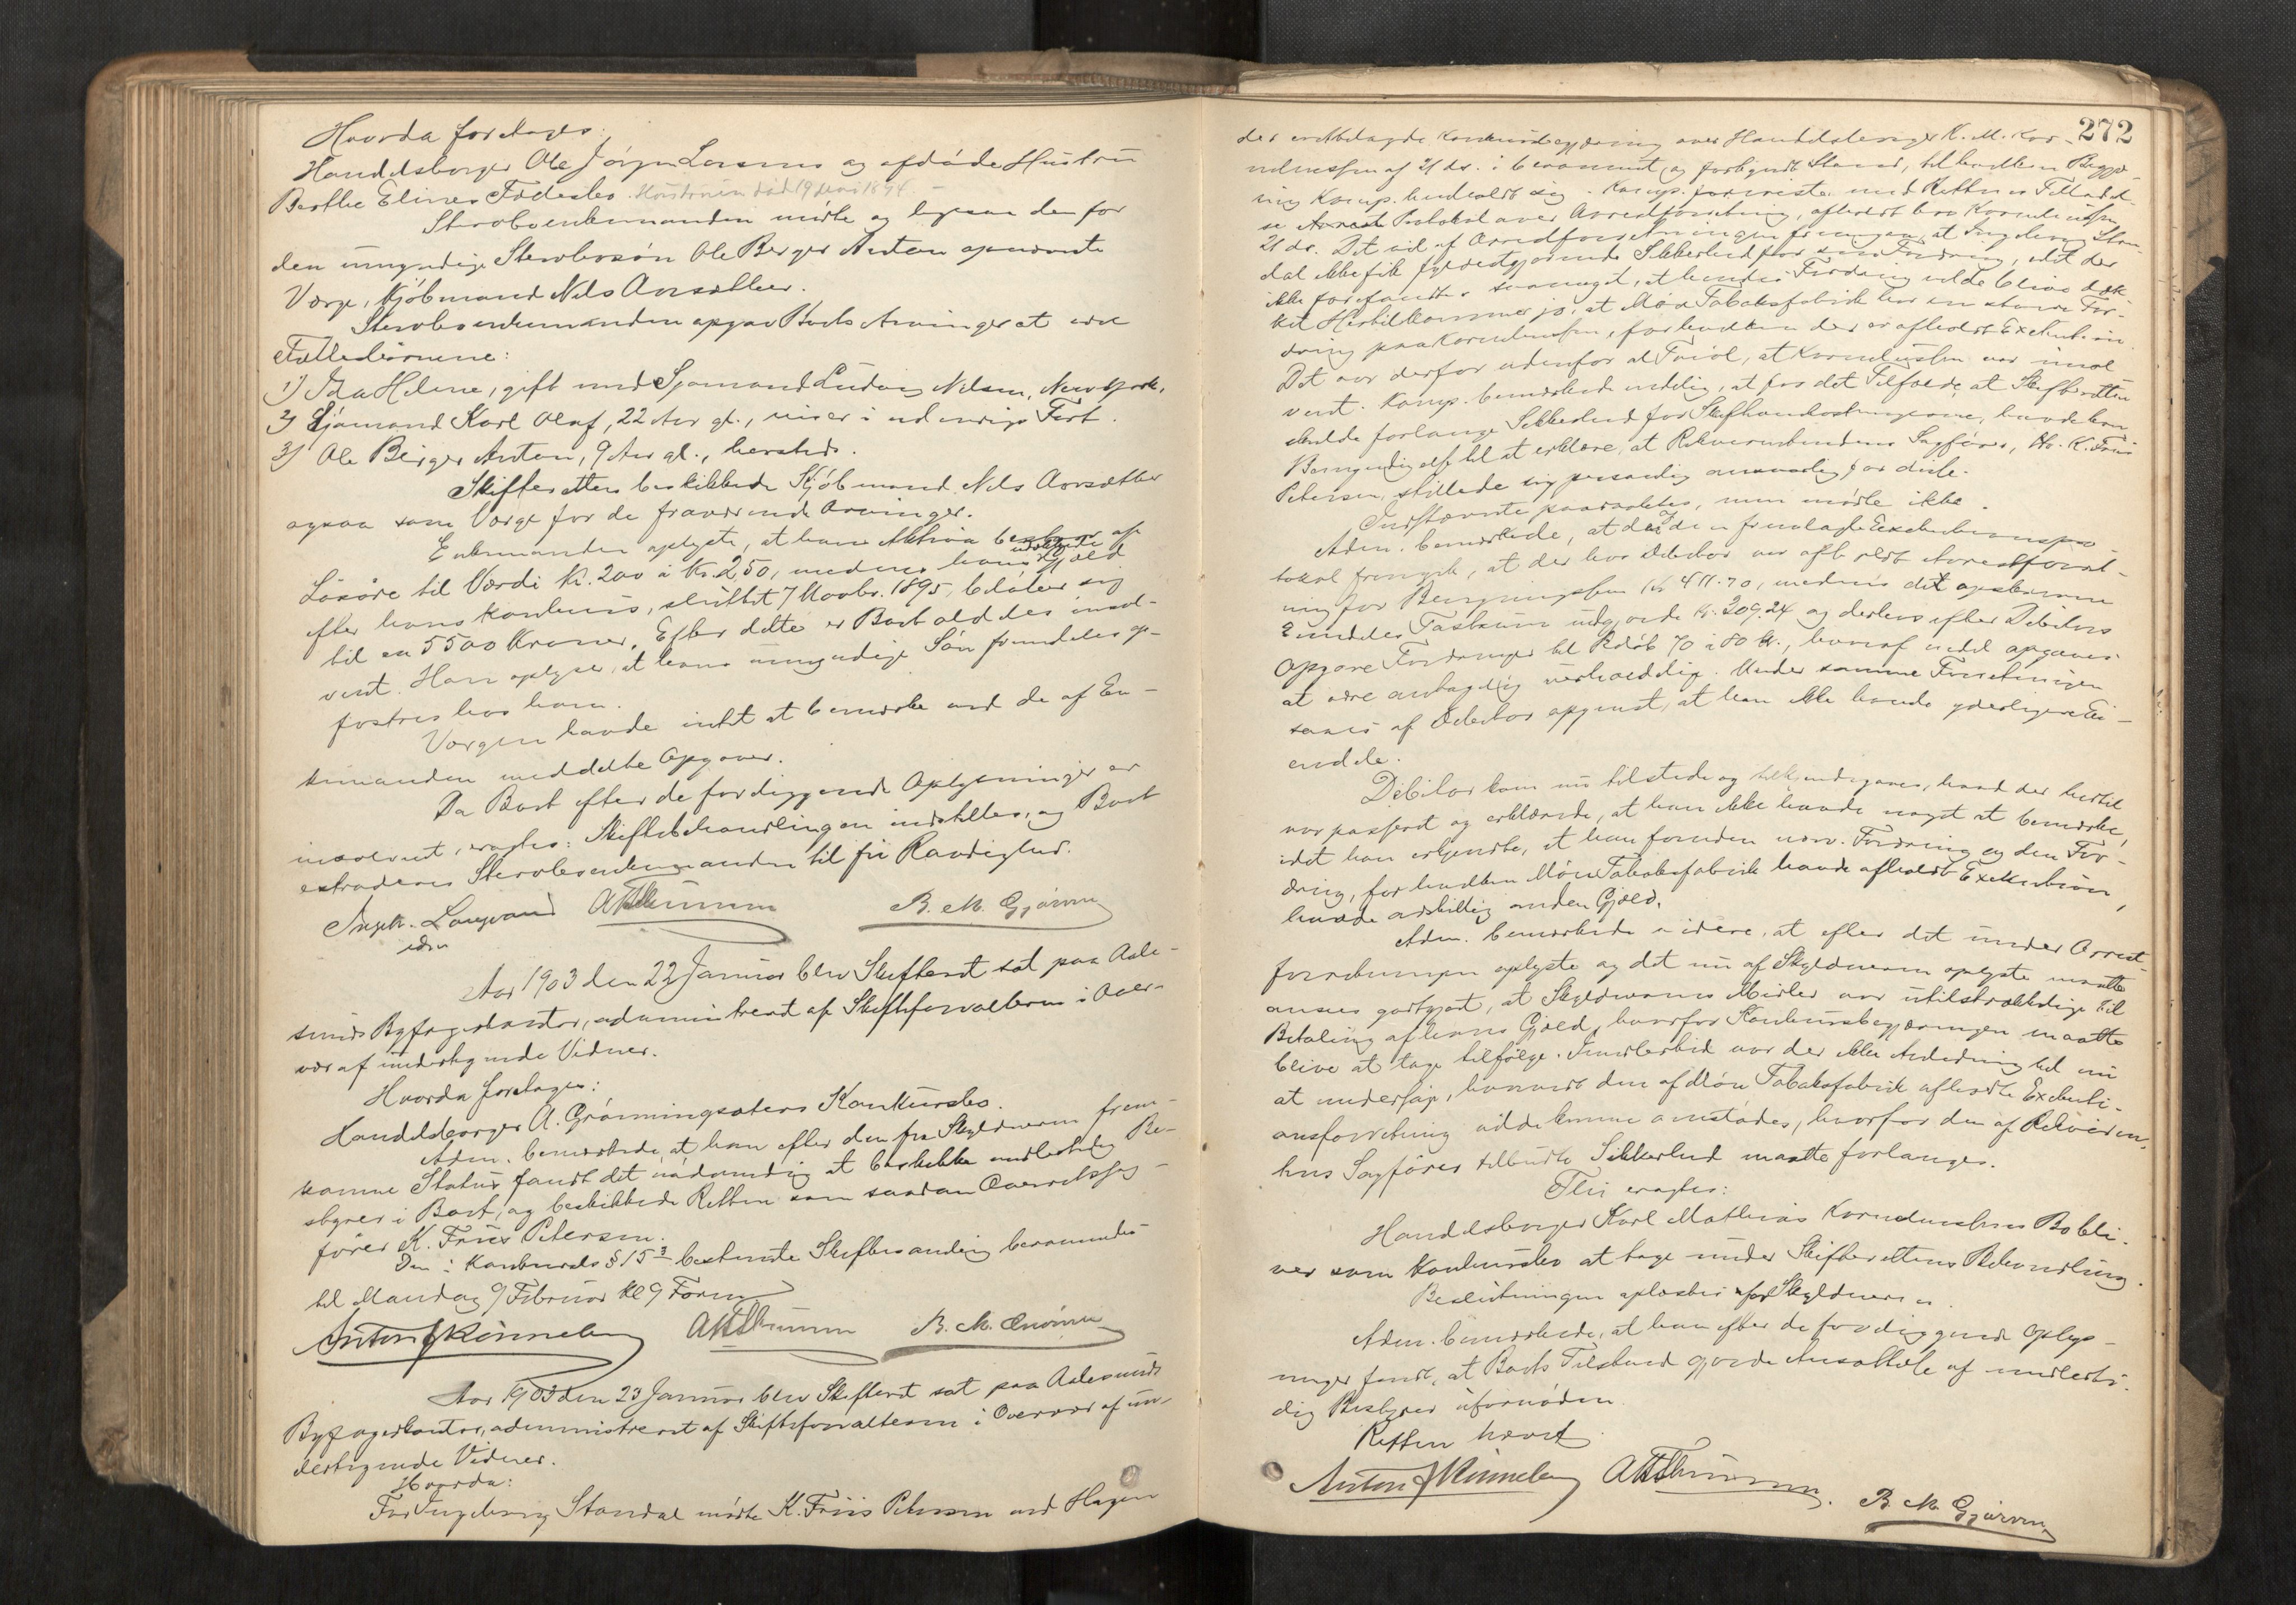 Hvorda foretages:
Handelsborger Ole Jörgen Larsens og afdöde Hustru
Berthe Elines Fællesbo. Hustruen död 19 1894.
Stervboenkemanden mödte og ligesaa den for
den umyndige Stervbosön Ole Berger Anton opnævnte
Værge, Kjöbmand Nils Aarsæther.
Stervboenkemanden opgav Boets Arvinger at være
Fællesbörnene:
1) Ida Helene, gift med Sjömand Ludvig Nilsen, New York.
2) Sjömand Karl Olaf, 22 Aar gl., reiser i udenrigs Fart.
3) Ole Birger Anton, 9 Aar gl., hersteds.
Skifteretten beskikkede Kjöbmand Nils Aarsæther
ogsaa som Værge for de fraværende Arvinger.
Enkemanden oplyste, at hans Aktiva bestaar af
Lösöre til Værdi Kr. 200 à Kr. 250, medens hans udækkede Gjæld
efter hans Konkurs, sluttet 7 Novbr. 1895, belöber sig
til ca 5500 Kroner. Efter dette er Boet aldeles insol-
vent. Han oplyser, at hans umyndige Sön fremdeles op-
fostres hos ham.
Værgen havde intet at bemærke ved de af En-
kemanden meddelte Opgaver.
Da Boet efter de foreliggende Oplysninger er
insolvent, eragtes: Skiftebehandlingen indstilles, og Boet
extraderes Stervboenkemanden til fri Raadighed.
Ingv. Langvand AKThunem B. M. Gjörven
edsv
Aar 1903 den 22 Januar blev Skifteret sat paa Aale-
sunds Byfogedkontor, administreret af Skifteforvalteren i Over-
vær af undertegnede Vidner.
Hvorda foretages:
Handelsborger A. Grönningsæters Konkursbo.
Adm. bemærkede, at han efter den fra Skyldneren frem-
komne Status fandt det nödvendig at beskikke midlertidig Be-
styrer i Boet, og beskikkede Retten som saadan Overretssag-
förer K. Friis Petersen.
Den i Konkursls § 15 3 bestemte Skiftesamling berammedes
til Mandag 9 Februar Kl 9 Form
Anton J Rönneberg AKThunem B. M. Gjörven
Aar 1903 den 23 Januar blev Skifteret sat paa Aalesunds
Byfogedkontor, administreret af Skifteforvalteren i Overvær af un-
dertegnede Vidner.
Hvorda:
For Ingeborg Standal mödte K. Friis Petersen ved Hagen
272
der Konkursbegjæring over Handelsborger K. M. Kor-
neliussen af 21 ds. i berammet og forkyndt Stand, til hvilken Begjæ-
ring Komp. henholdt sig. Komp. foreviste med Rettens Tilladel-
se Protokol over Arrestforretning, afholdt hos Korneliussen
21 ds. Det vil af Arrestforretningen fremgaa, at Ingeborg Stan-
dal ikke fik fyldestgjörende Sikkerhed for sin Fordring, idet der
ikke forefandtes saameget, at hendes Fordring vilde blive dæk-
ket. Hertil kommer jo, at Möre Tobaksfabrik har en större For-
dring paa Korneliussen, for hvilken der er afholdt Exekution.
Det var derfor udenfor al Tvivl, at Korneliussen var insol
vent. Komp. bemærkede endelig, at for det Tilfælde, at Skifteretten
skulde forlange Sikkerhed for Skifteomkostningerne, havde han
Bemyndigelse til at erklære, at Rekvirentindens Sagförer, Hr. K. Friis
Petersen, stillede sig personlig ansvarlig for disse.
Indstævnte paaraabtes, men mödte ikke.
Adm. bemærkede, at det af den fremlagte Exekutionspro
tokol fremgik, at der hos Debitor var afholdt Arrestforret-
ning for Kr 411.70, medens det opskrevne
Eiendeles Taxtsum udgjorde Kr. 209.24 og derhos efter Debitors
Opgave Fordringer til Belöb 70 à 80 Kr., hvoraf endel opgaves
at være antagelig uerholdelig. Under samme Forretningen
saaes af Debitor opgivet, at han ikke havde yderligere Ei-
endele.
Debitor kom nu tilstede og tilkjendegaves, hvad der hertil
var passeret og erklærede, at han ikke havde noget at bemærke,
idet han erkjendte, at han foruden nærv. Fordring og den For-
dring, for hvilken Möre Tobaksfabrik havde afholdt Exekution,
havde adskillig anden Gjæld.
Adm. bemærkede videre, at efter det under Arrest-
forretningen oplyste og det nu af Skyldneren oplyste maatte
ansees godtgjort, at Skyldnerens Midler var utilstrækkelige til
Betaling af hans Gjæld, hvorfor Konkursbegjæringen maatte
blive at tage tilfölge. Imidlertid var der ikke Anledning til nu
at undersöge, hvorvidt den af Möre Tobaksfabrik afholdte Exekuti-
onsforretning vilde kunne omstödes, hvorfor den af Rekviren-
tens Sagförer tilbudte Sikkerhed maatte forlanges.
Thi eragtes:
Handelsborger Karl Mathias Korneliussens Bo bli-
ver som Konkursbo at tage under Skifterettens Behandling.
Beslutningen oplæstes for Skyldneren.
Adm. bemærkede, at han efter de foreliggende Oplys-
ninger fandt, at Boets Tilstand gjorde Ansættelse af midlerti-
dig Bestyrer ufornöden.
Retten hævet
Anton J Rönneberg AKThunem. B. M. Gjörven